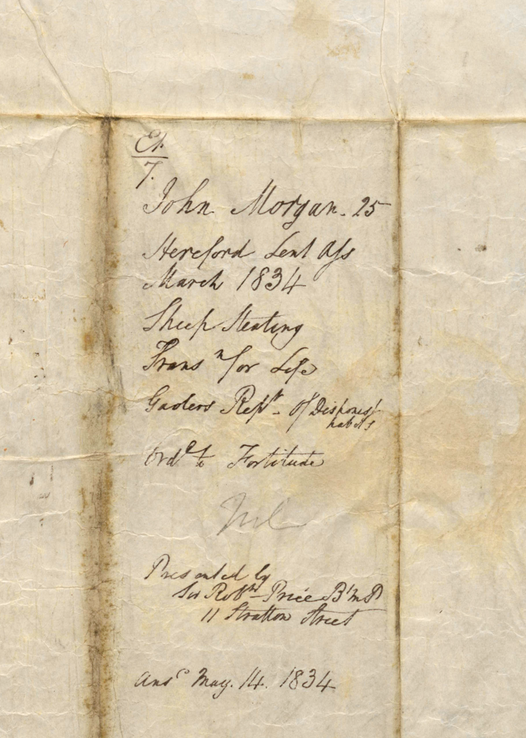 7.
John Morgan. 25
Hereford Lent Ass
March 1834
Sheep Stealing
Transn for Life
Gaolers Rept - Of Dishonest
habits
Ord.d to Fortitude
Presented by
Sir Robt Price Bt MP
11 Stratton Street
Ansd May. 14. 1834